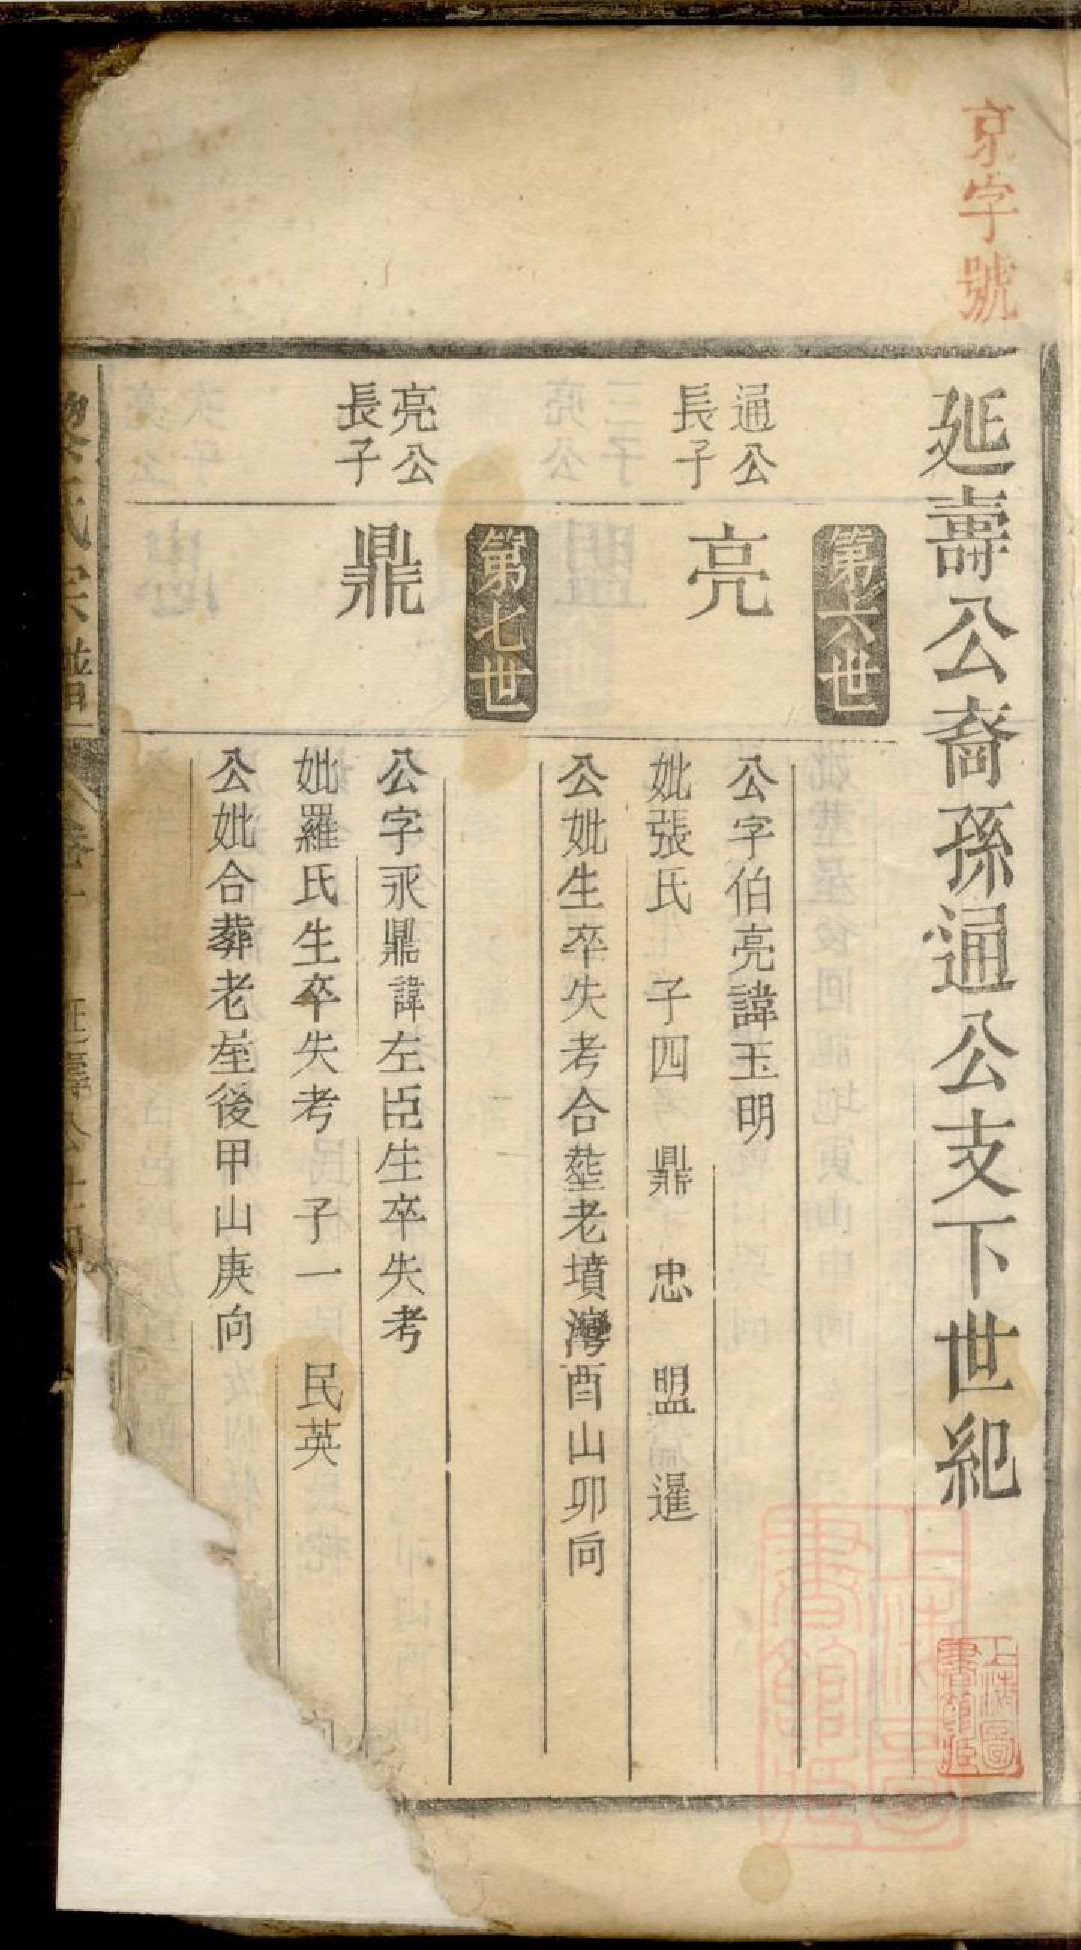 京字號
延壽公裔孫通公支下世紀
上海圖書館藏
第六世
通公長子
亮
公字伯亮諱玉明
妣張氏 子四 鼎 忠 盟 暹
公妣生卒失考合塟老墳灣酉山卯向
第七世
亮公長子
鼎
公字永鼎諱左臣生卒失考
妣羅氏生卒失考 子一 民英
公妣合葬老屋後甲山庚向
黎氏宗譜